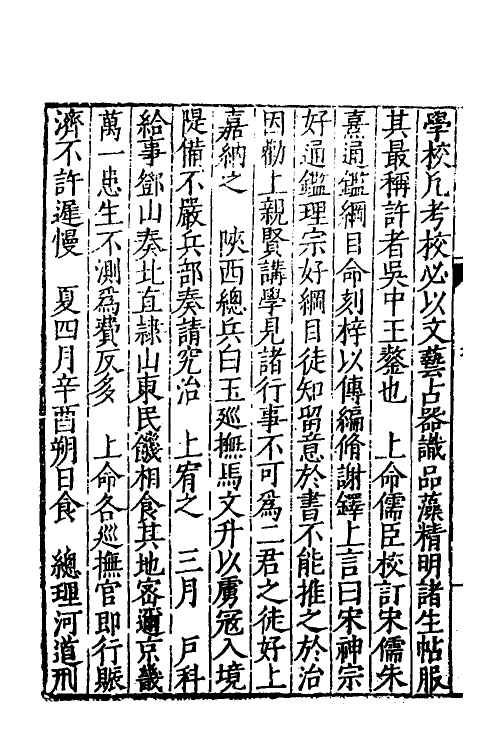 學校凡考校必以文藝占器識品藻精明諸生帖服
其最稱許者吳中王鏊也　上命儒臣校訂宋儒朱
熹通鑑綱目命刻梓以傳編脩謝鐸上言曰宋神宗
好通鑑理宗好綱目徒知留意於書不能推之於治
因勸上親賢講學見諸行事不可為二君之徒好上
嘉納之　陝西總兵白玉巡撫馬文升以虜冦入境
隄備不嚴兵部奏請究治　上宥之　三月　戸科
給事鄧山奏北直隷山東民饑相食其地密邇京畿
萬一患生不測為費反多　上命各巡撫官即行賑
濟不許遲慢　夏四月辛酉朔日食　總理河道刑